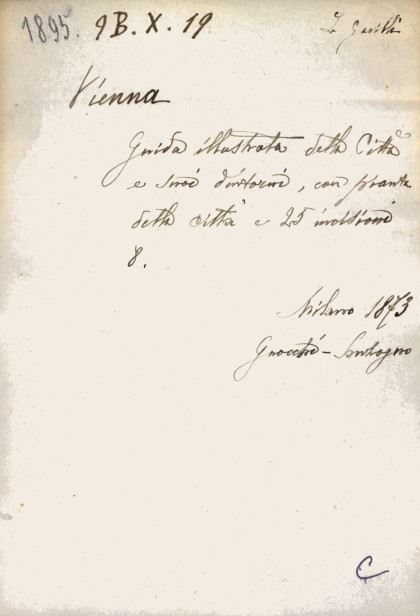 1895. 9 B. X. 19
Vienna
Guida illustrata della Città
e suoi dintorni, con pianta
della città e 25 incisioni
8.
Milano 1873
Gnocchi
C